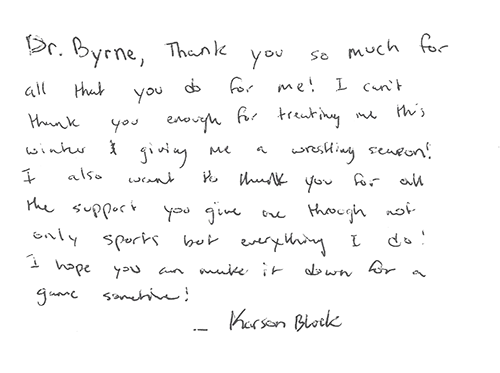 Dr. Byrne, Thank you so much for
all that you do for me! I can't
thank you enough for treating me this
winter & giving me a wrestling season!
I also want to thank you for all
the support you give me through not
only sports but everything I do!
I hope you can make it down for a
game sometime!
- Karson Block